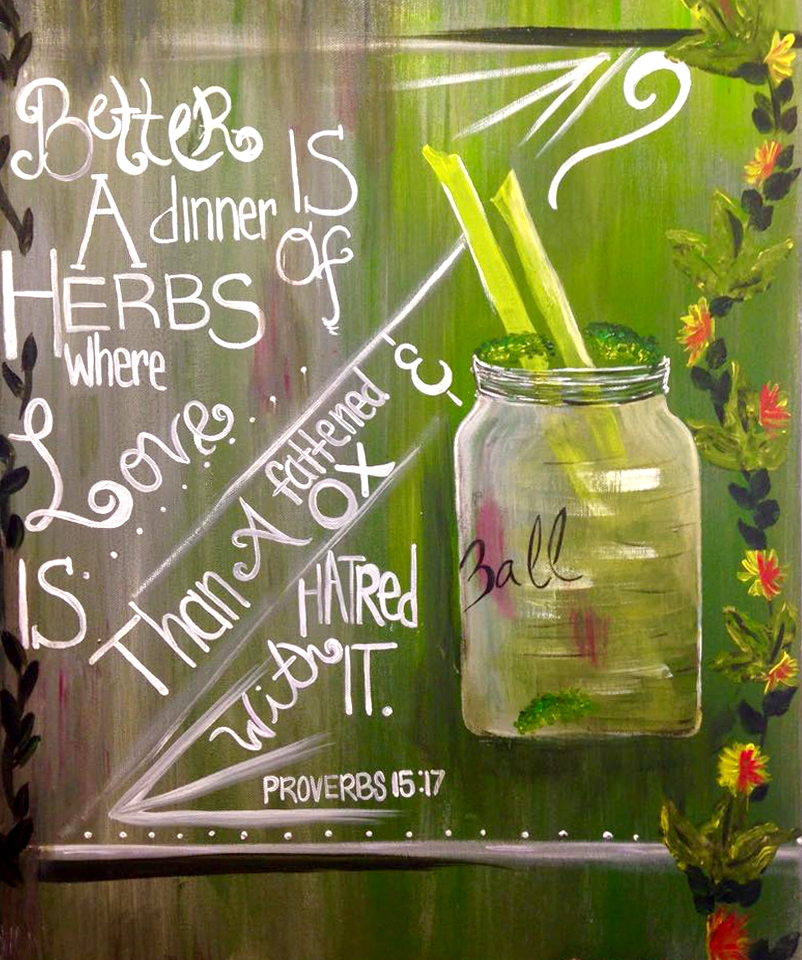 Better IS
A dinner Of
HERBS
where
Love
IS
Than A fattened
OX &
HATRed
With IT.
PROVERBS 15:17
Ball